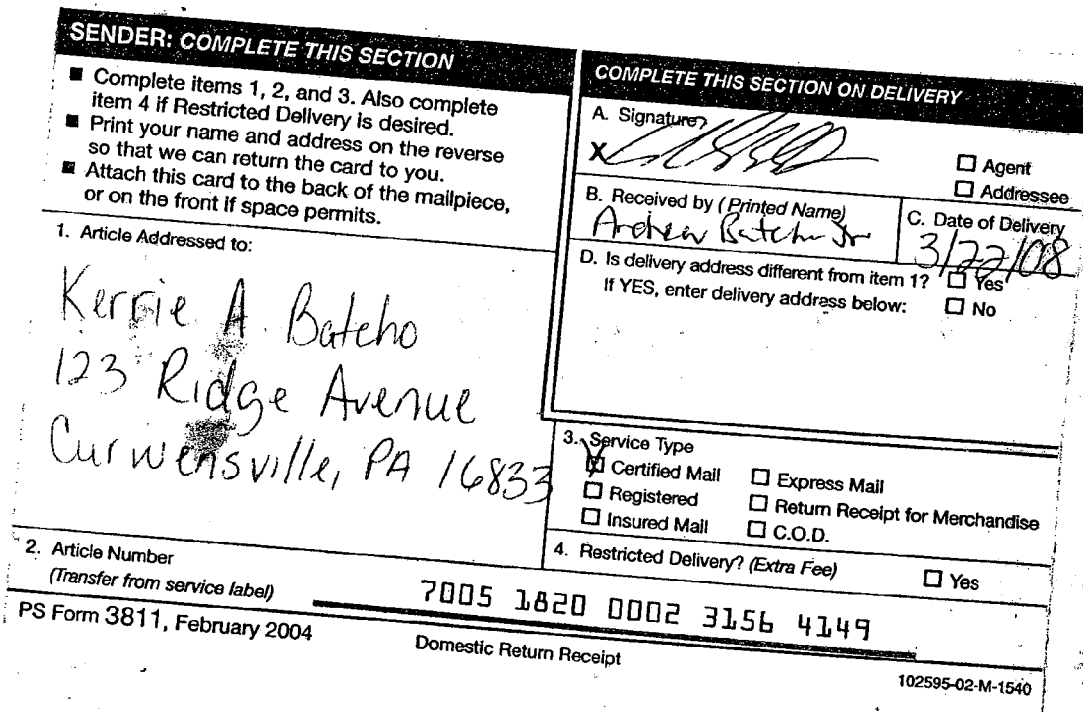 SENDER: COMPLETE THIS SECTION
■ Complete items 1, 2, and 3. Also complete
item 4 if Restricted Delivery is desired.
■ Print your name and address on the reverse
so that we can return the card to you.
■ Attach this card to the back of the mailpiece,
or on the front if space permits.
1. Article Addressed to:
Kerrie A. Batcho
123 Ridge Avenue
Curwensville, PA 16833
2. Article Number
(Transfer from service label)
7005 1820 0002 3156 4149
COMPLETE THIS SECTION ON DELIVERY
A. Signature
X
☐ Agent
☐ Addressee
B. Received by (Printed Name)
Andrew Batcho Jr
C. Date of Delivery
3/22/08
D. Is delivery address different from item 1? ☐ Yes
If YES, enter delivery address below: ☐ No
3. Service Type
☒ Certified Mail ☐ Express Mail
☐ Registered ☐ Return Receipt for Merchandise
☐ Insured Mail ☐ C.O.D.
4. Restricted Delivery? (Extra Fee) ☐ Yes
PS Form 3811, February 2004
Domestic Return Receipt
102595-02-M-1540